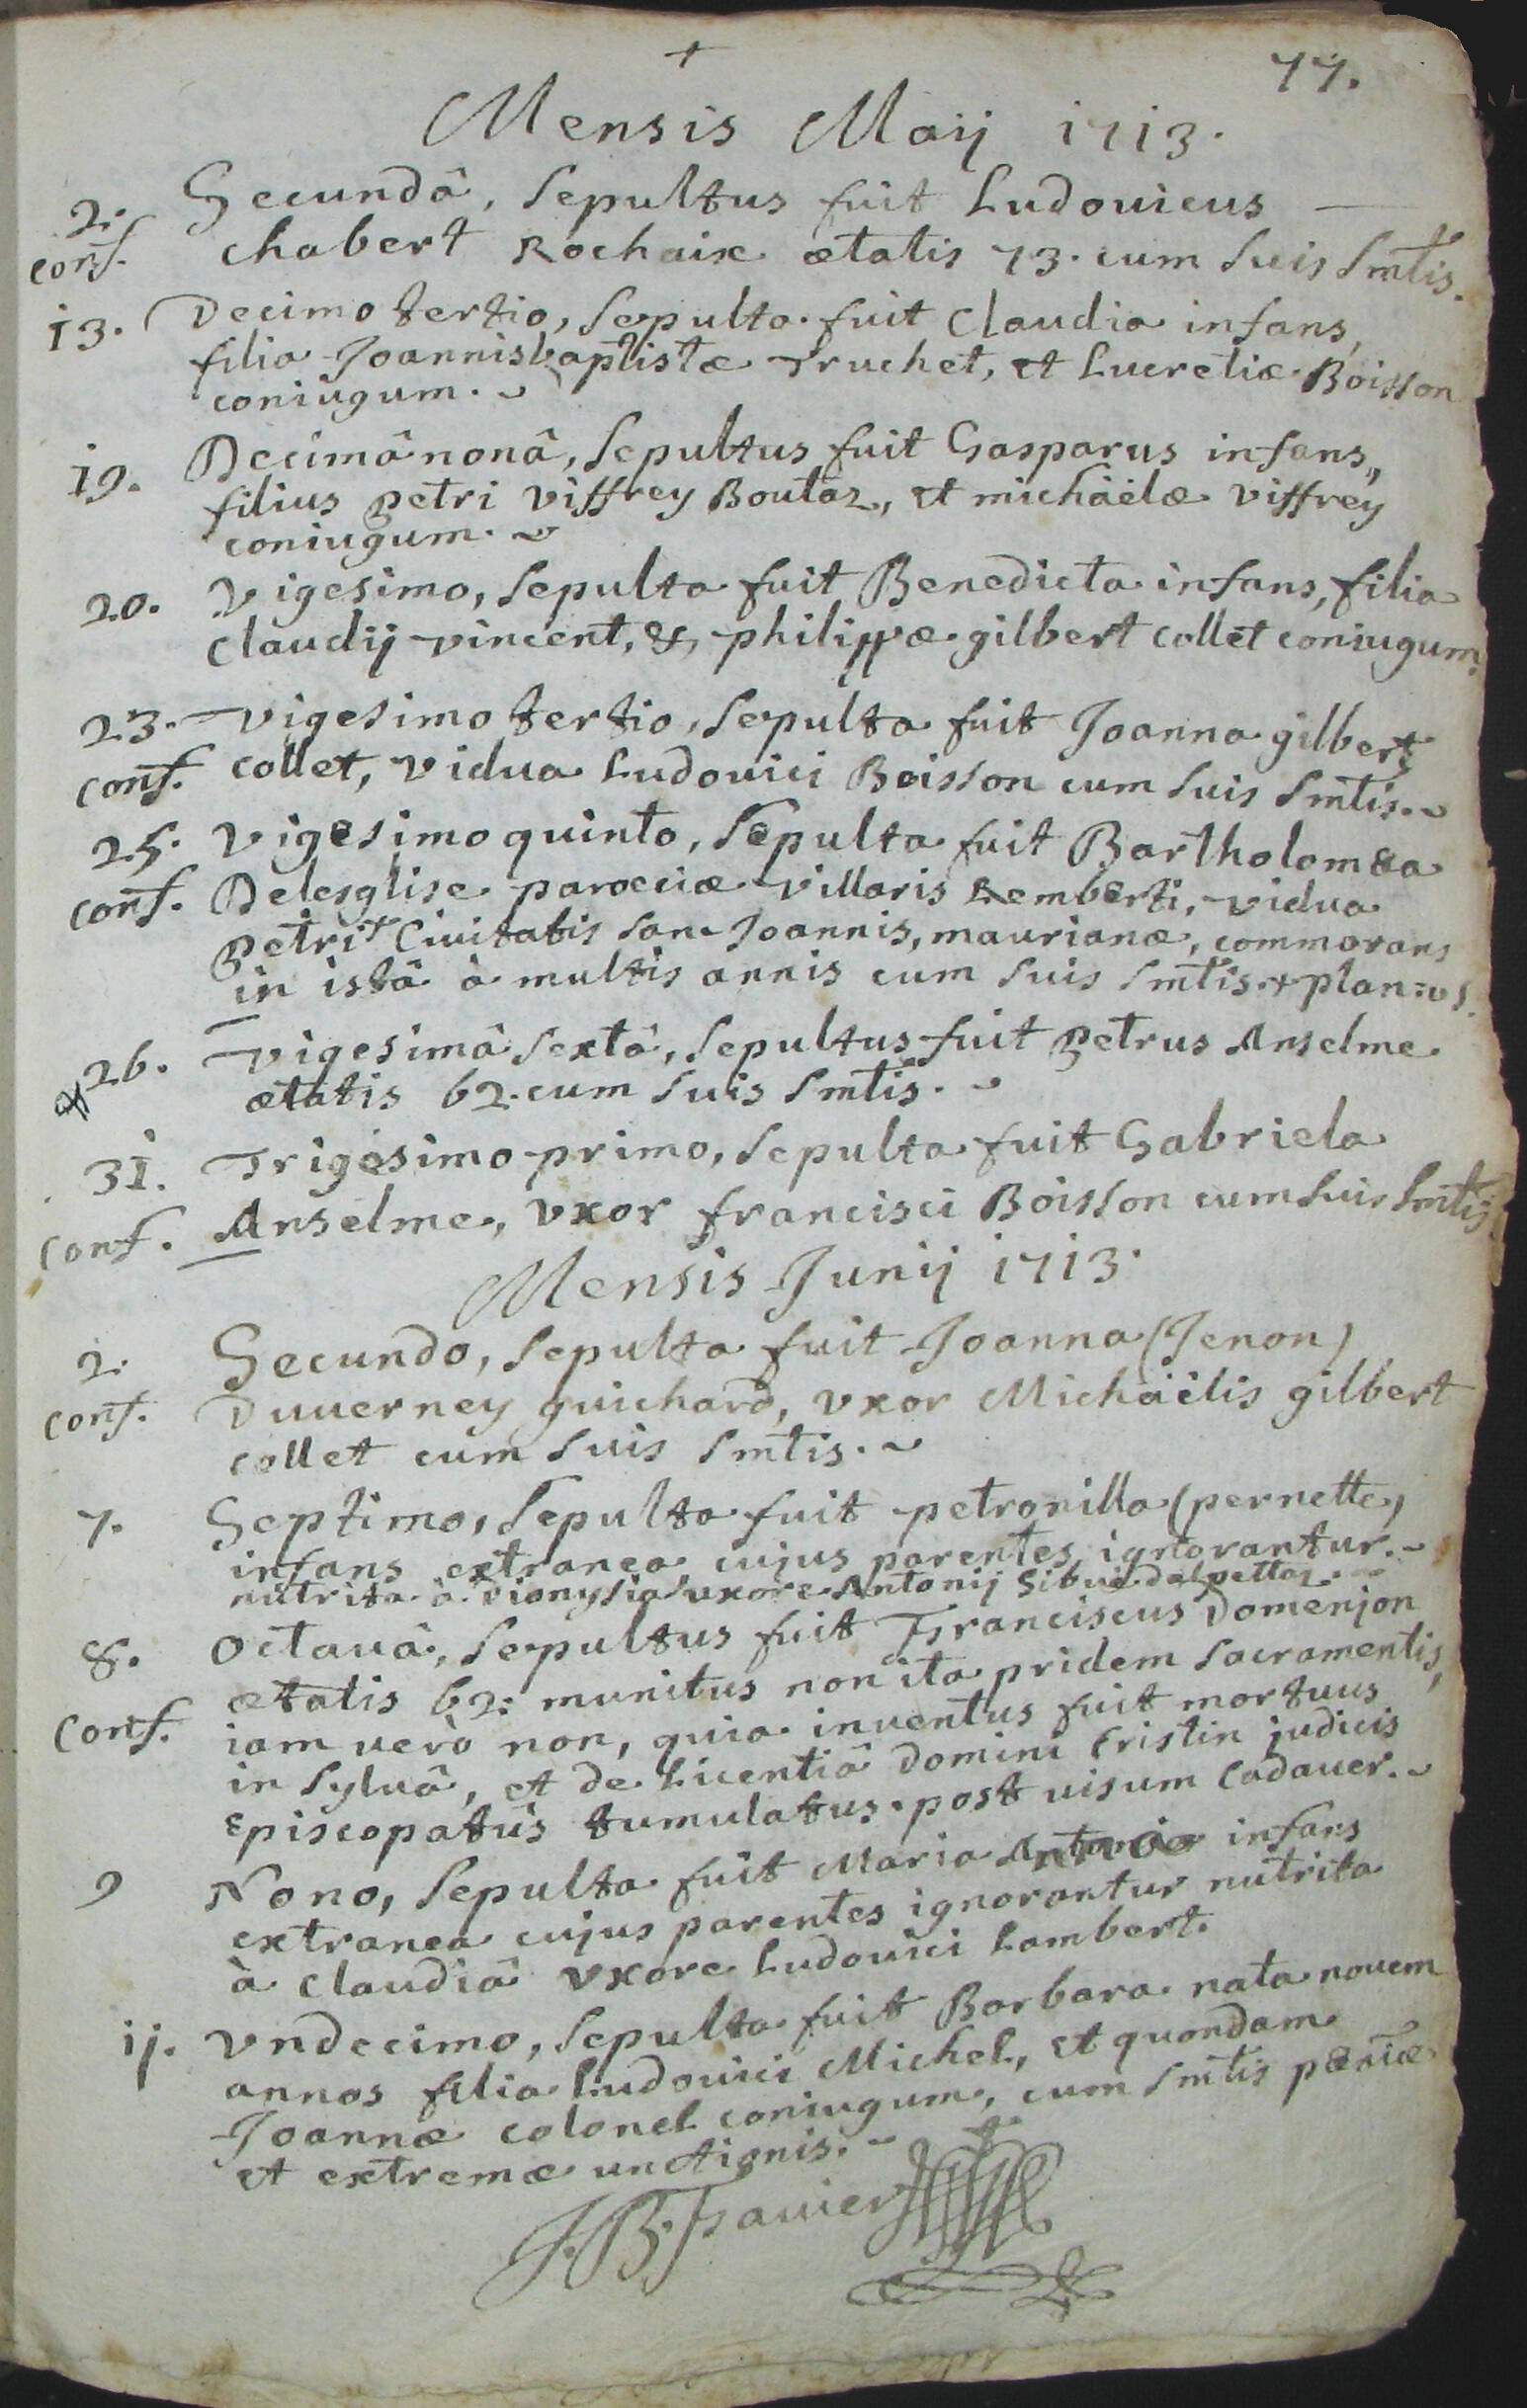 +
77.
Mensis Maij 1713.
2. Secundâ, sepultus fuit Ludouicus —
conf. chabert Rochaix ætatis 73. cum suis smtis.
13. Decimo tertio, sepulta fuit Claudia infans,
filia Joannisbaptistæ Truchet, et Lucretiæ Boisson
coniugum.
19. Decimânonâ, sepultus fuit Gasparus infans,
filius petri Viffrey Boutaz, et michäelæ Viffrey
coniugum.
20. Vigesimo, sepulta fuit Benedicta infans, filia
Claudij vincent, & philippæ gilbert collet coniugum.
23. vigesimo tertio, sepulta fuit Joanna gilbert
conf. collet, vidua Ludouici Boisson cum suis smtis.
25. vigesimo quinto, sepulta fuit Bartholomæa
conf. Delesglise parœciæ villaris Remberti, vidua
Petri + Ciuitatis san. Joannis, maurianæ, commorans
in istâ à multis annis cum suis smtis. + planus.
26. vigesimâ sextâ, sepultus fuit Petrus Anselme
ætatis 62. cum suis smtis.
31. Trigesimo primo, sepulta fuit Gabriela
conf. Anselme, vxor francisci Boisson cum suis smtis
Mensis Junij 1713.
2. Secundo, sepulta fuit Joanna (Jenon)
conf. Duuerney guichard, vxor Michäelis gilbert
collet cum suis smtis.
7. Septimo, sepulta fuit petronilla (pernette)
infans extranea cujus parentes ignorantur.
nutrita à Dionysia uxore Antonij Sibué dalpettaz.
8. Octauâ, sepultus fuit Franciscus Domenjon
ætatis 62: munitus non ita pridem sacramentis,
conf. iam verò non, quia inuentus fuit mortuus
in syluâ, et de Licentiâ Domini Cristin judicis
Episcopatûs tumulatus post uisum Cadauer.
9 Nono, sepulta fuit Maria Antonia infans
extranea cujus parentes ignorantur nutrita
à Claudiâ vxore Ludouici Lambert.
ij. Vndecimo, sepulta fuit Barbara nata nouem
annos filia Ludouici Michel, et quondam
Joannæ colonel coniugum, cum smtis pæniæ
et extremæ unctionis.
J. B. Frauier